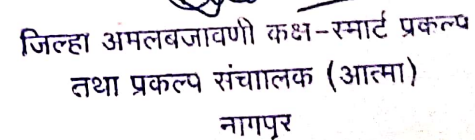 जिल्हा अमलबजावणी कक्ष-स्मार्ट प्रकल्प
तथा प्रकल्प संचाालक (आत्मा)
नागपूर